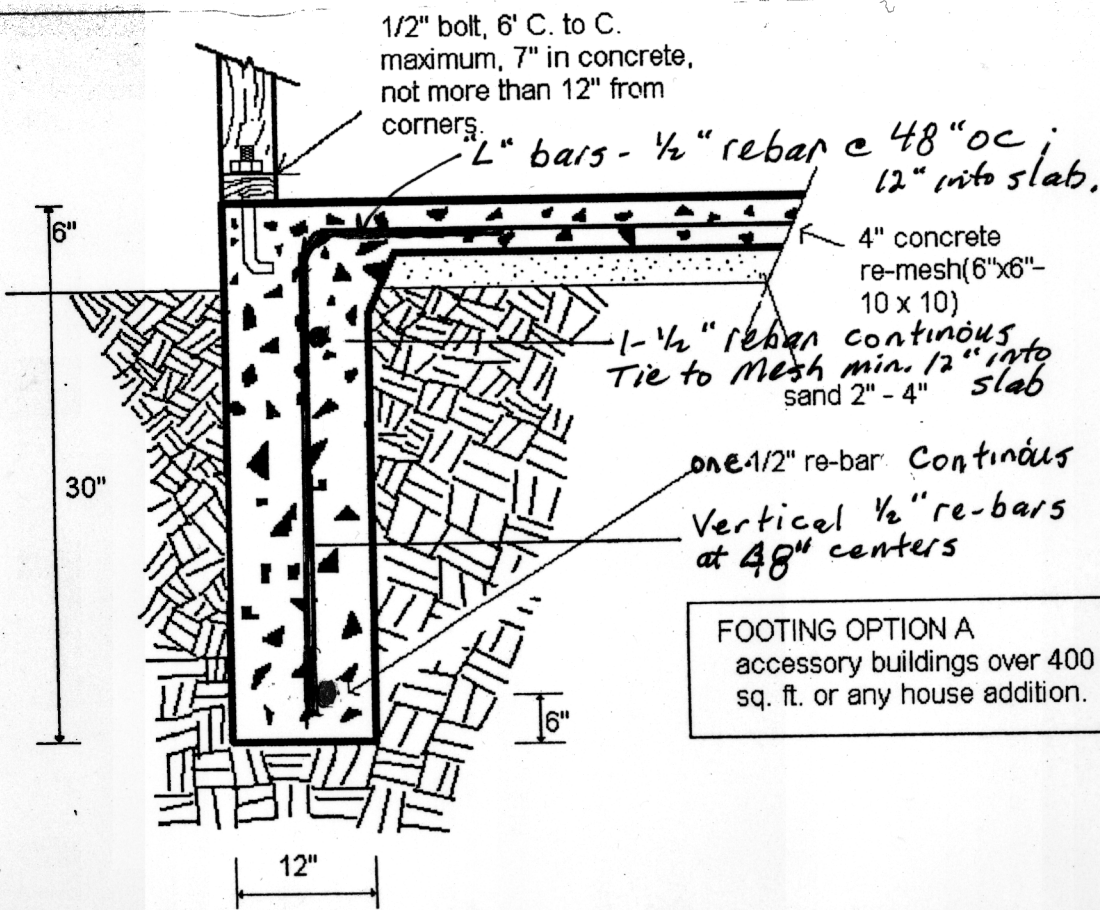 1/2" bolt, 6' C. to C.
maximum, 7" in concrete,
not more than 12" from
corners.
"L" bars - 1/2" rebar @ 48" oc ;
12" into slab.
6"
4" concrete
re-mesh(6"x6"-
10 x 10)
1- 1/2" rebar continous
Tie to Mesh min. 12" into
slab
sand 2" - 4"
30"
one 1/2" re-bar Continous
Vertical 1/2" re-bars
at 48" centers
FOOTING OPTION A
accessory buildings over 400
sq. ft. or any house addition.
6"
12"